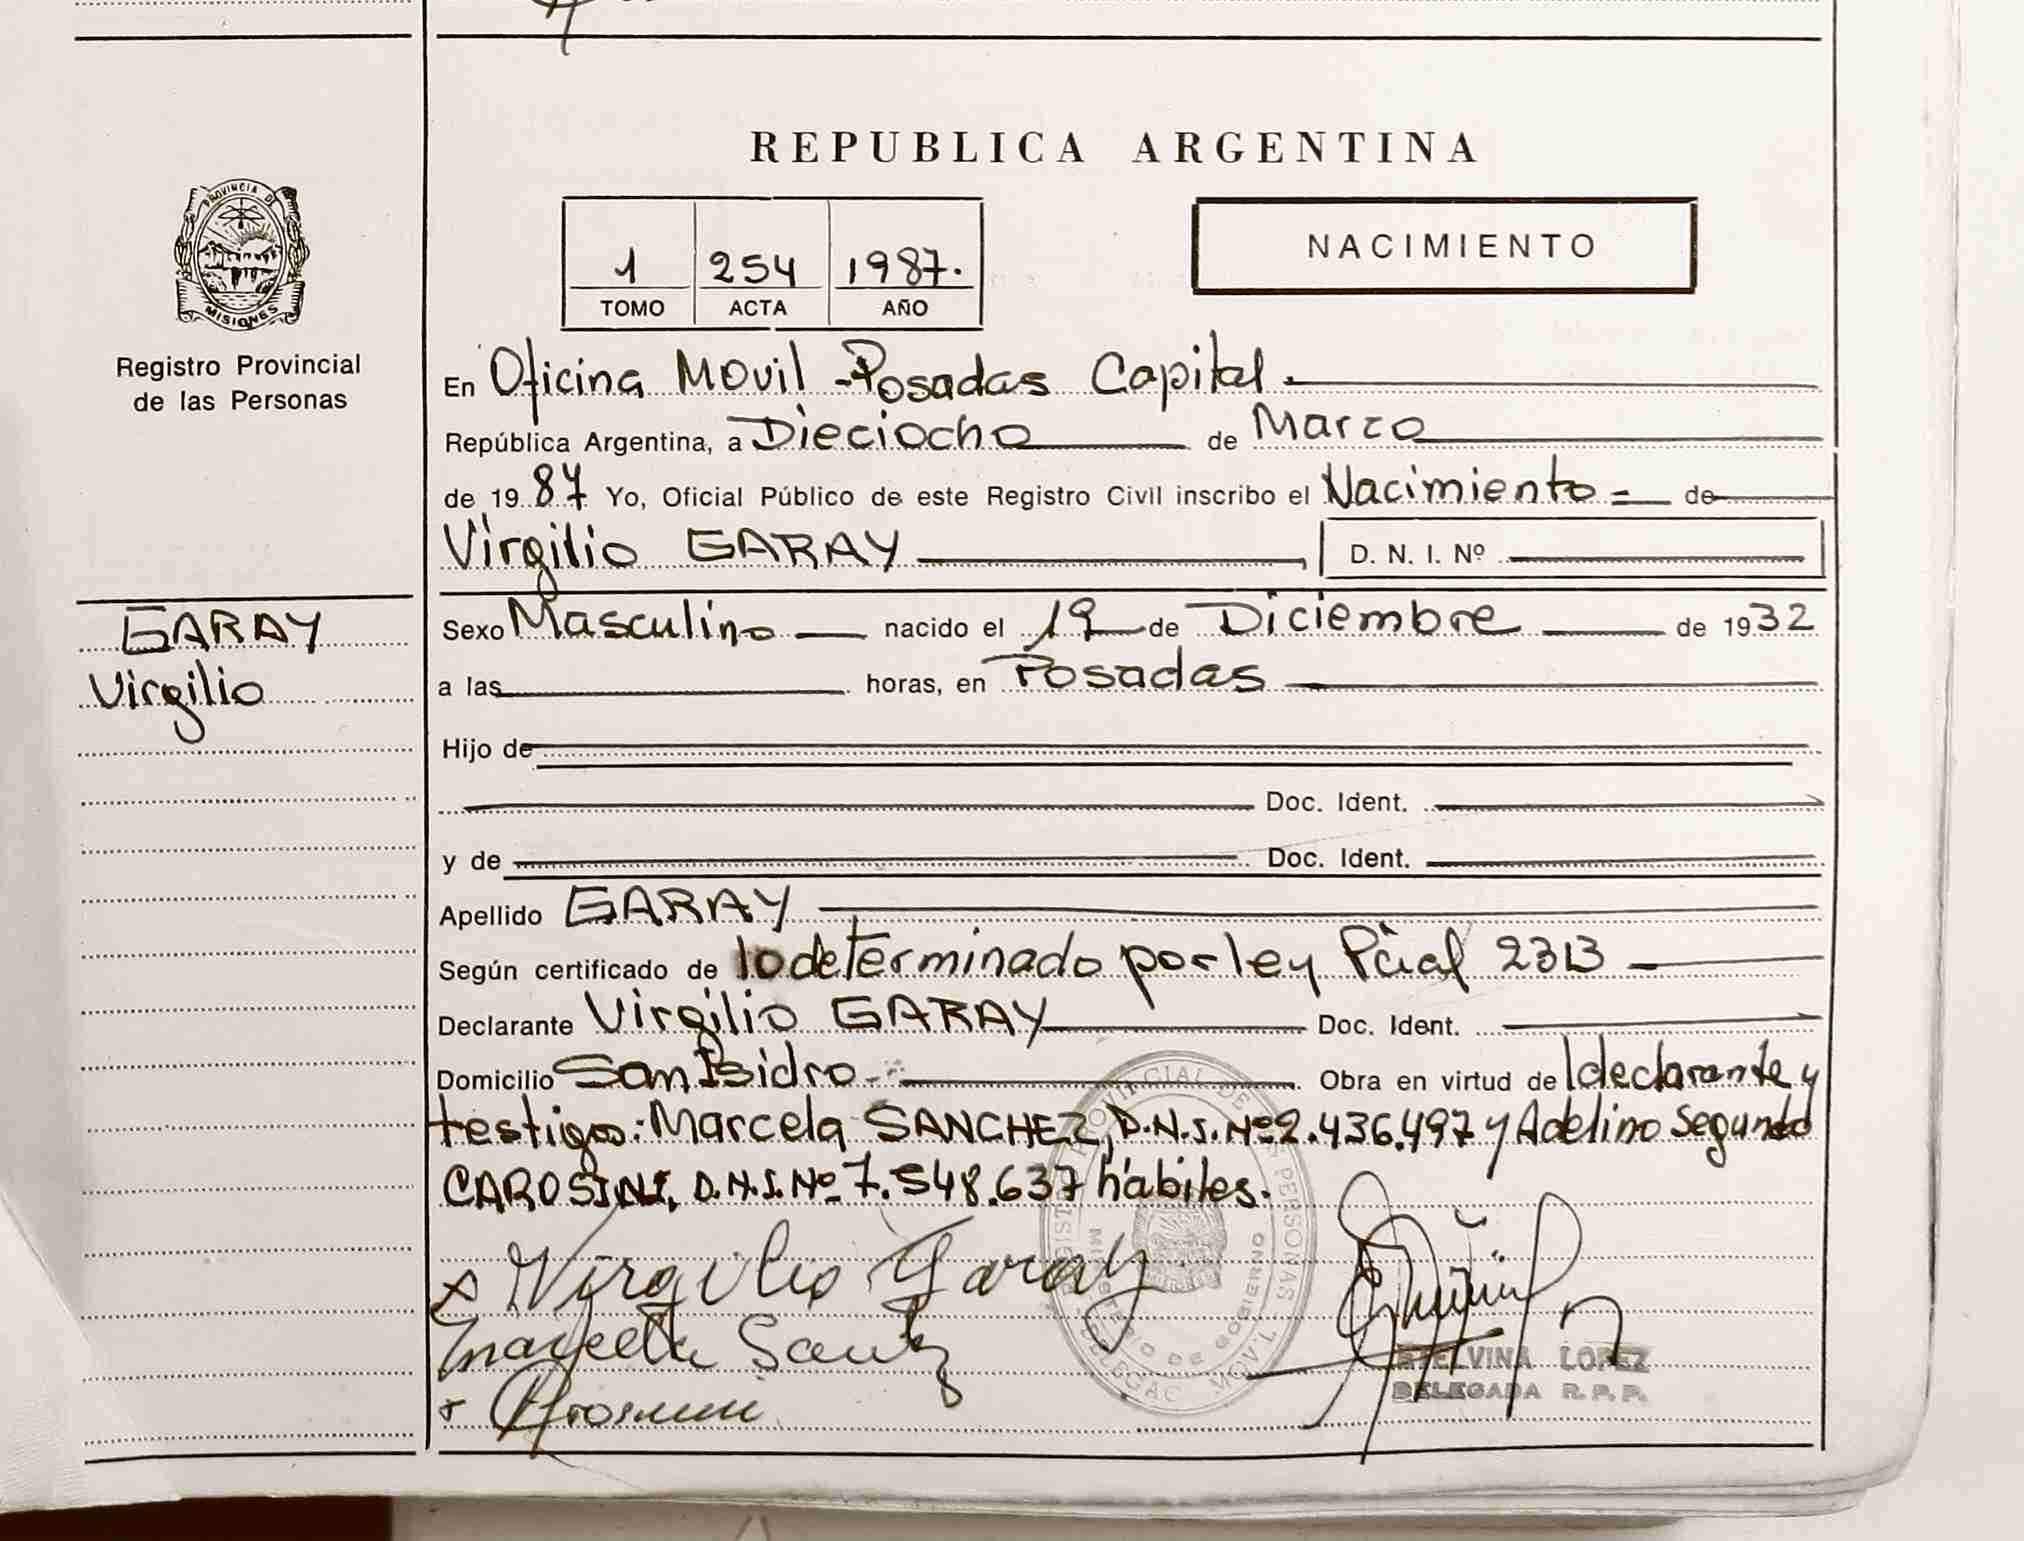 REPUBLICA ARGENTINA
PROVINCIA DE
MISIONES
Registro Provincial
de las Personas
1 254 1987.
TOMO ACTA AÑO
NACIMIENTO
En Oficina Movil - Posadas Capital.
República Argentina, a Dieciocho de Marzo
de 1987 Yo, Oficial Público de este Registro Civil inscribo el Nacimiento = de
Virgilio GARAY D. N. I. Nº
GARAY
Virgilio
Sexo Masculino nacido el 19 de Diciembre de 1932
a las horas, en Posadas
Hijo de
Doc. Ident.
y de Doc. Ident.
Apellido GARAY
Según certificado de lo determinado por ley Pcial 2313
Declarante Virgilio GARAY Doc. Ident.
Domicilio San Isidro Obra en virtud de l declarante y
testigos: Marcela SANCHEZ, D.N.I. Nº 2.436.497 y Adelino Segundo
CAROSINI, D.N.I. Nº 7.548.637 hábiles.
Virgilio Garay
REGISTRO PROVINCIAL DE LAS PERSONAS
MINISTERIO DE GOBIERNO
DELEGAC. MOVIL
ETELVINA LOPEZ
DELEGADA R. P. P.